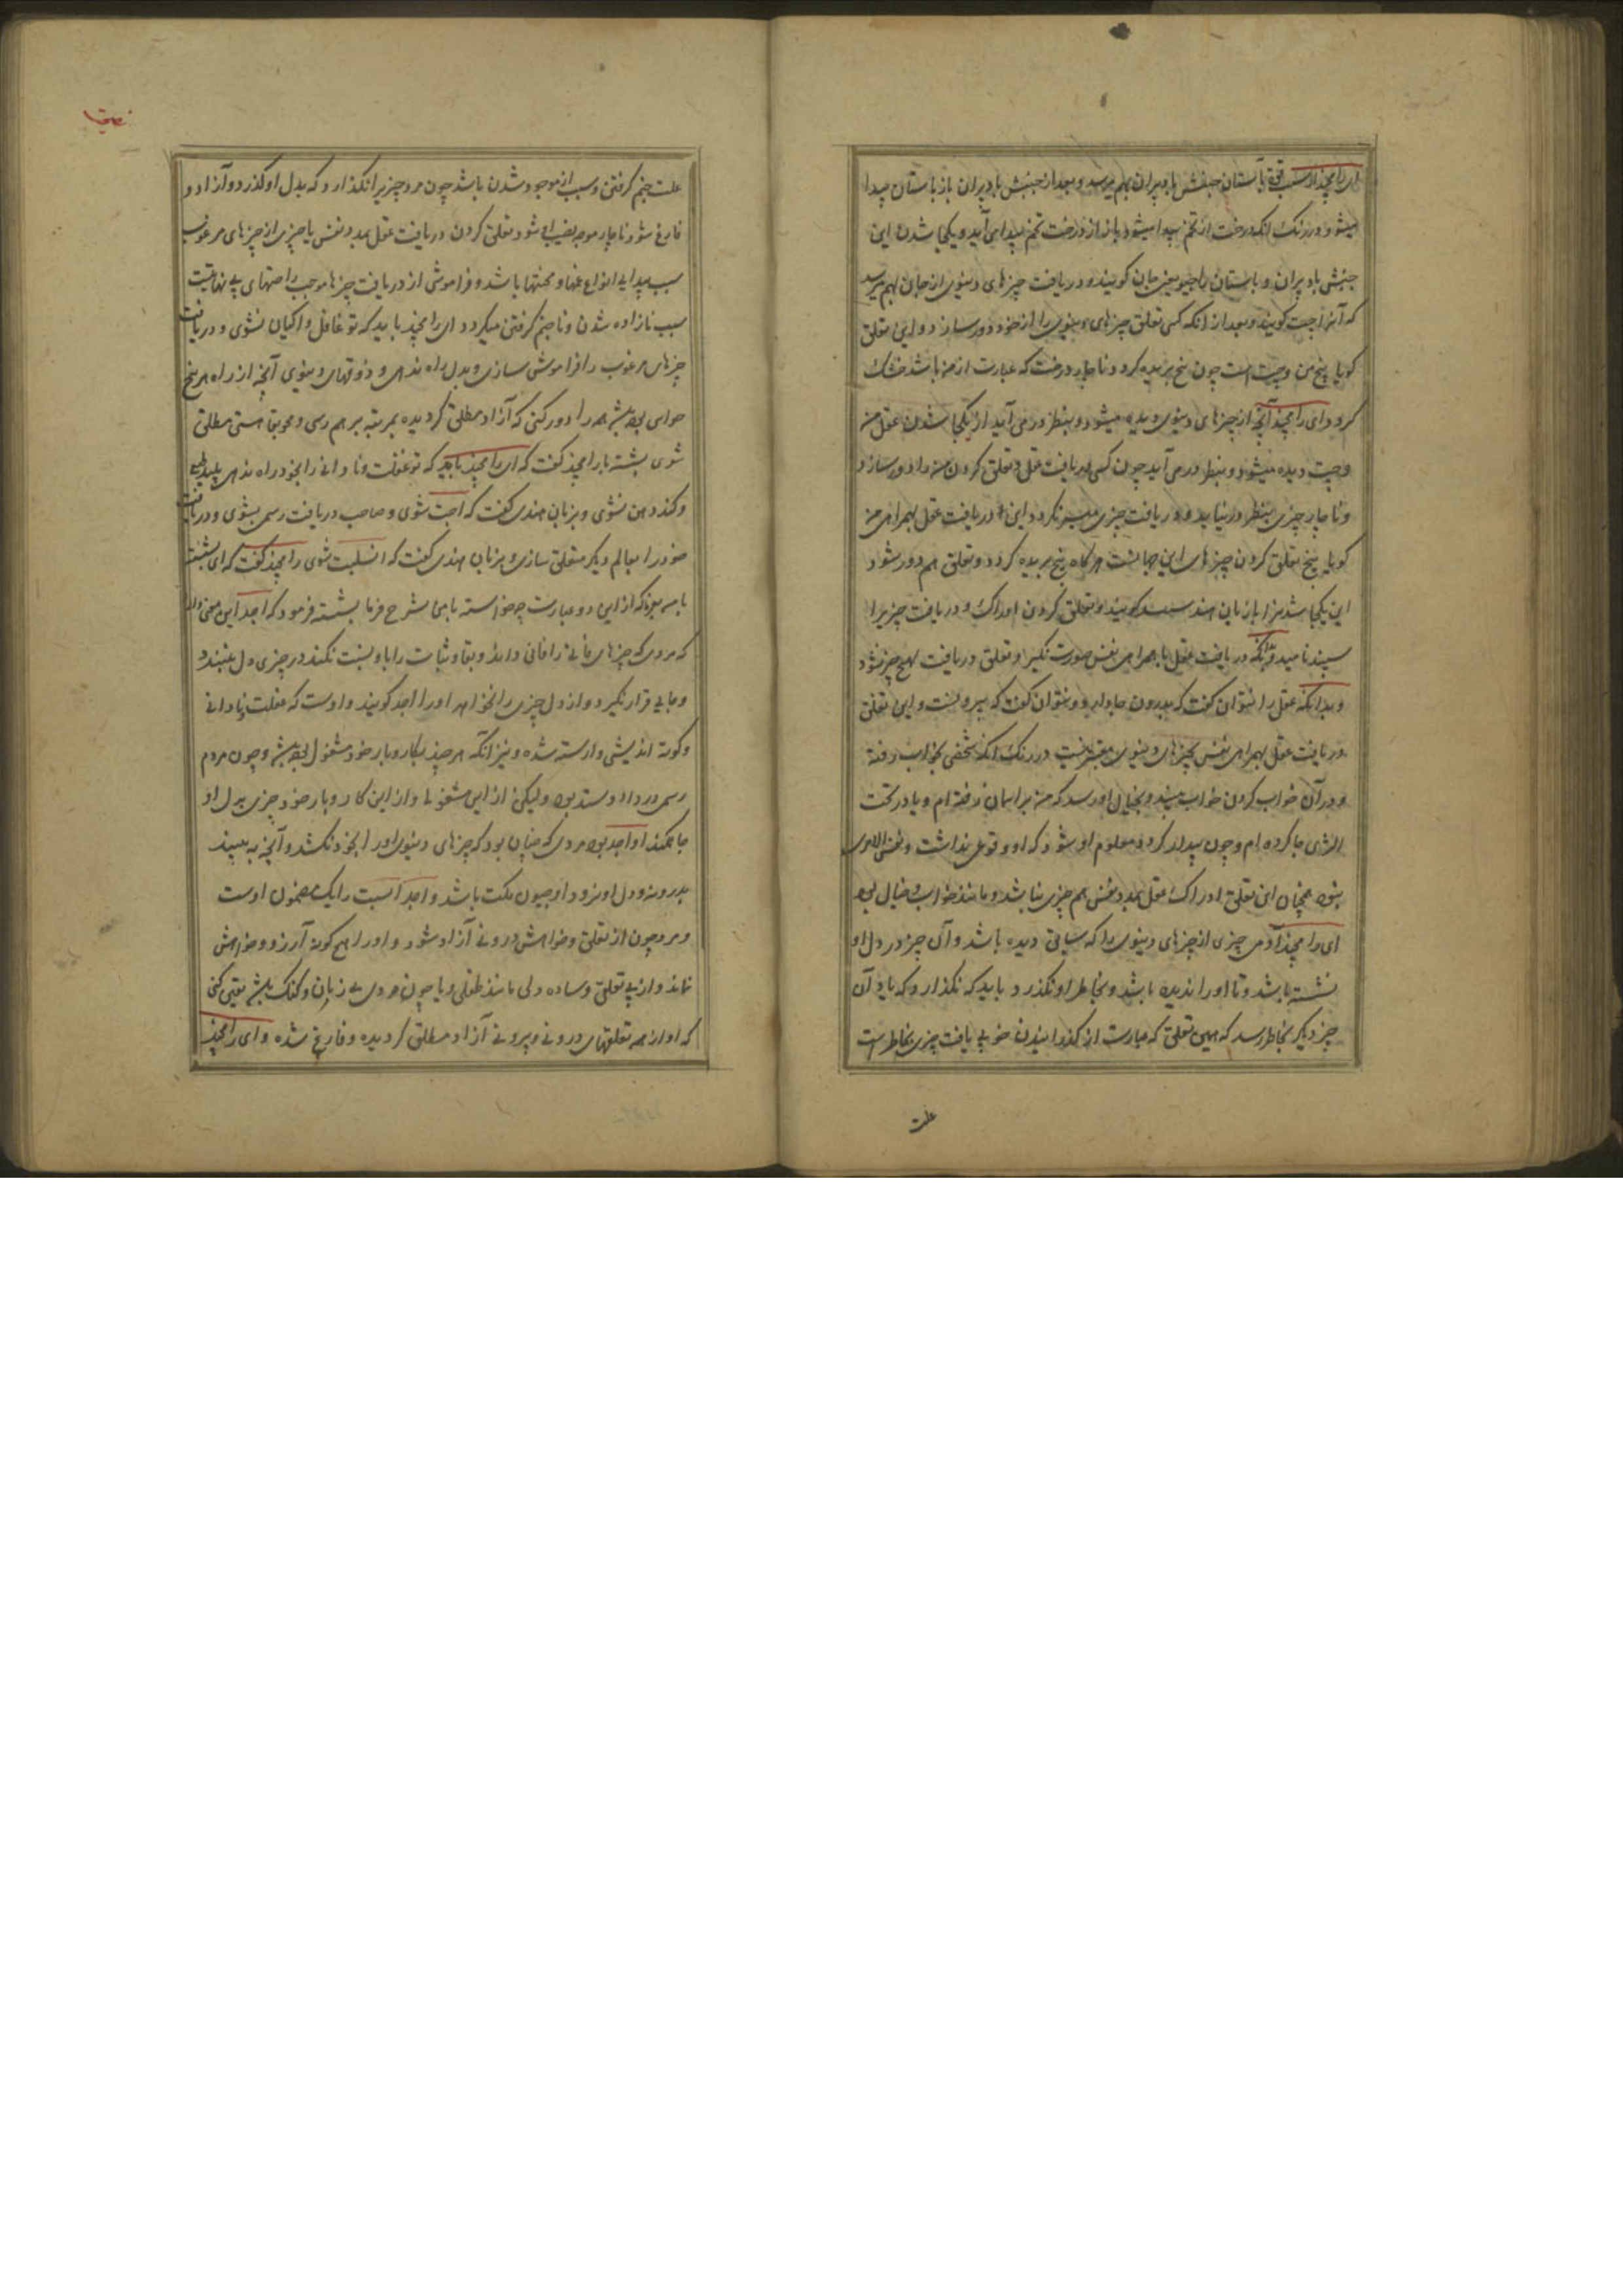 ای رامچند از سبب قوة باستان جنبش باد پران بهم میرسد و بعد از جنبش باد پران باز باستان پیدا
میشود و در رنگ انکه درخت از تخم پیدا میشود باز از درخت تخم پیدا می آید و یکجا شدن این
جنبش باد پران و باستان را جیو یعنی جان کویند و دریافت چیزهای دنیوی از جان بهم میرسد
که آنرا چت کویند و بعد از انکه کسی تعلق چیزهای دنیوی را از خود دور سازد و این تعلق
کویا بیخ من و چت است چون بیخ بریده کردد ناچار درخت که عبارت از من باشد خشک
کردد ای رامچند آنچه از چیزهای دنیوی دیده میشود و بنظر در می آید از یکجا شدن عقل من
و چت دیده میشود و بنظر در می آید چون کسی دریافت عقل و تعلق کردن من را دور سازد
و ناچار چیزی بنظر در نیاید و دریافت چیزی میسر نکردد این دریافت عقل بهمراهی من
کویا بیخ تعلق کردن چیزهای این جهانست هرکاه بیخ بریده کردد و تعلق هم دور شود
این یکجا شدن را بزبان هند سنبند کویند و تعلق کردن ادراک و دریافت چیز را
سنبند نامید و بدانکه دریافت عقل با همراهی نفس صورت نکیرد و تعلق دریافت هیچ چیز نشود
و بدانکه عقل را نتوان کفت که بدرون جا دارد و نتوان کفت که بیرونست و این تعلق
دریافت عقل بهمراهی نفس بچیزهای دنیوی معتبر نیست در رنک انکه شخصی بخواب رفته
و در آن خواب کردن خواب میبیند و بخیال او رسد که من بر اسمان رفته ام و یا در تحت
الثری جا کرده ام و چون بیدار کردد معلوم او شود که او وقوعی نداشت و نفس الامری
نبود همچنان این تعلق ادراک عقل بمدد نفس هم چیزی نباشد و مانند خواب و خیال بود
ای رامچند آدمی چیزی از چیزهای دنیوی را که سابق دیده باشد و آن چیز در دل او
نشسته باشد و تا او را ندیده باشد و بخاطر او نکذرد باید که نکذارد که یاد آن
چیز دیکر بخاطر رسد که همین تعلق که عبارت از کذرانیدن خوبی یافت چیزی بخاطر است
علت
علت جنم کرفتن و سبب از موجود شدن باشد چون مرد چیزی را نکذارد که بدل او کذرد و آزاد و
فارغ شود ناچار موجه نصیب او شود تعلق کردن دریافت عقل بمدد نفس با چیزی از چیزهای مرغوب
سبب پیدایی انواع غمها و محنتها باشد و فراموشی از دریافت چیزها موجب راحتهای بی نهایت
سبب نازاده شدن و ناجنم کرفتن میکردد ای رامچند باید که تو غافل و اکیان نشوی و دریافت
چیزهای مرغوب را فراموش سازی و بدل راه ندهی و ذوقهای دنیوی آنچه از راه هر پنج
حواس بوده باشد همه را دور کنی که آزاد مطلق کردیده بمرتبه برهم رسی و محو بقا هستی مطلق
شوی بشسته با رامچند کفت که ای رامچند باید که تو غفلت و نادانی را بخود راه ندهی
و کند ذهن نشوی و بزبان هندی کفت که اجت شوی و صاحب دریافت رسمی بشوی و دریافت
خود را بعالم دیکر متعلق سازی و بزبان هندی کفت که انسلبت شوی رامچند کفت که ای بشسته
با من بکو که ازین دو عبارت چه خواسته با من شرح فرما بشسته فرمود که اجد این معنی دارد
که مردی که چیزهای فانی را فانی داند و بقا و ثبات را باو نسبت نکند در چیزی دل نبندد
و جایی قرار نکیرد و از دل چیزی را نخواهد او را اجد کویند و اوست که غفلت نادانی
و کوته اندیشی وارسته شده و نیز انکه هر چند بکار و بار خود مشغول بوده باشد و چون مردم
رسمی در داد و ستد بود ولیکن ازین مشغولی و ازین کار و بار خود چیزی بدل او
جا نکند او اجد بود مردی که چنان بود که چیزهای دنیوی او را بخود نکشد و آنچه به بیند
بدرون و دل او نرود او جیون مکت باشد و اجد انسبت را یک مضمون اوست
و مرد چون از تعلق و خواهش درونی آزاد شود و او را هیچ کونه آرزو و خواهش
نماند و از بی تعلق و ساده دلی مانند طفلی و یا چون مردی بی زبان و کنک باشد یقین کنی
که او از همه تعلقهای درونی و بیرونی آزاد مطلق کردیده و فارغ شده و ای رامچند